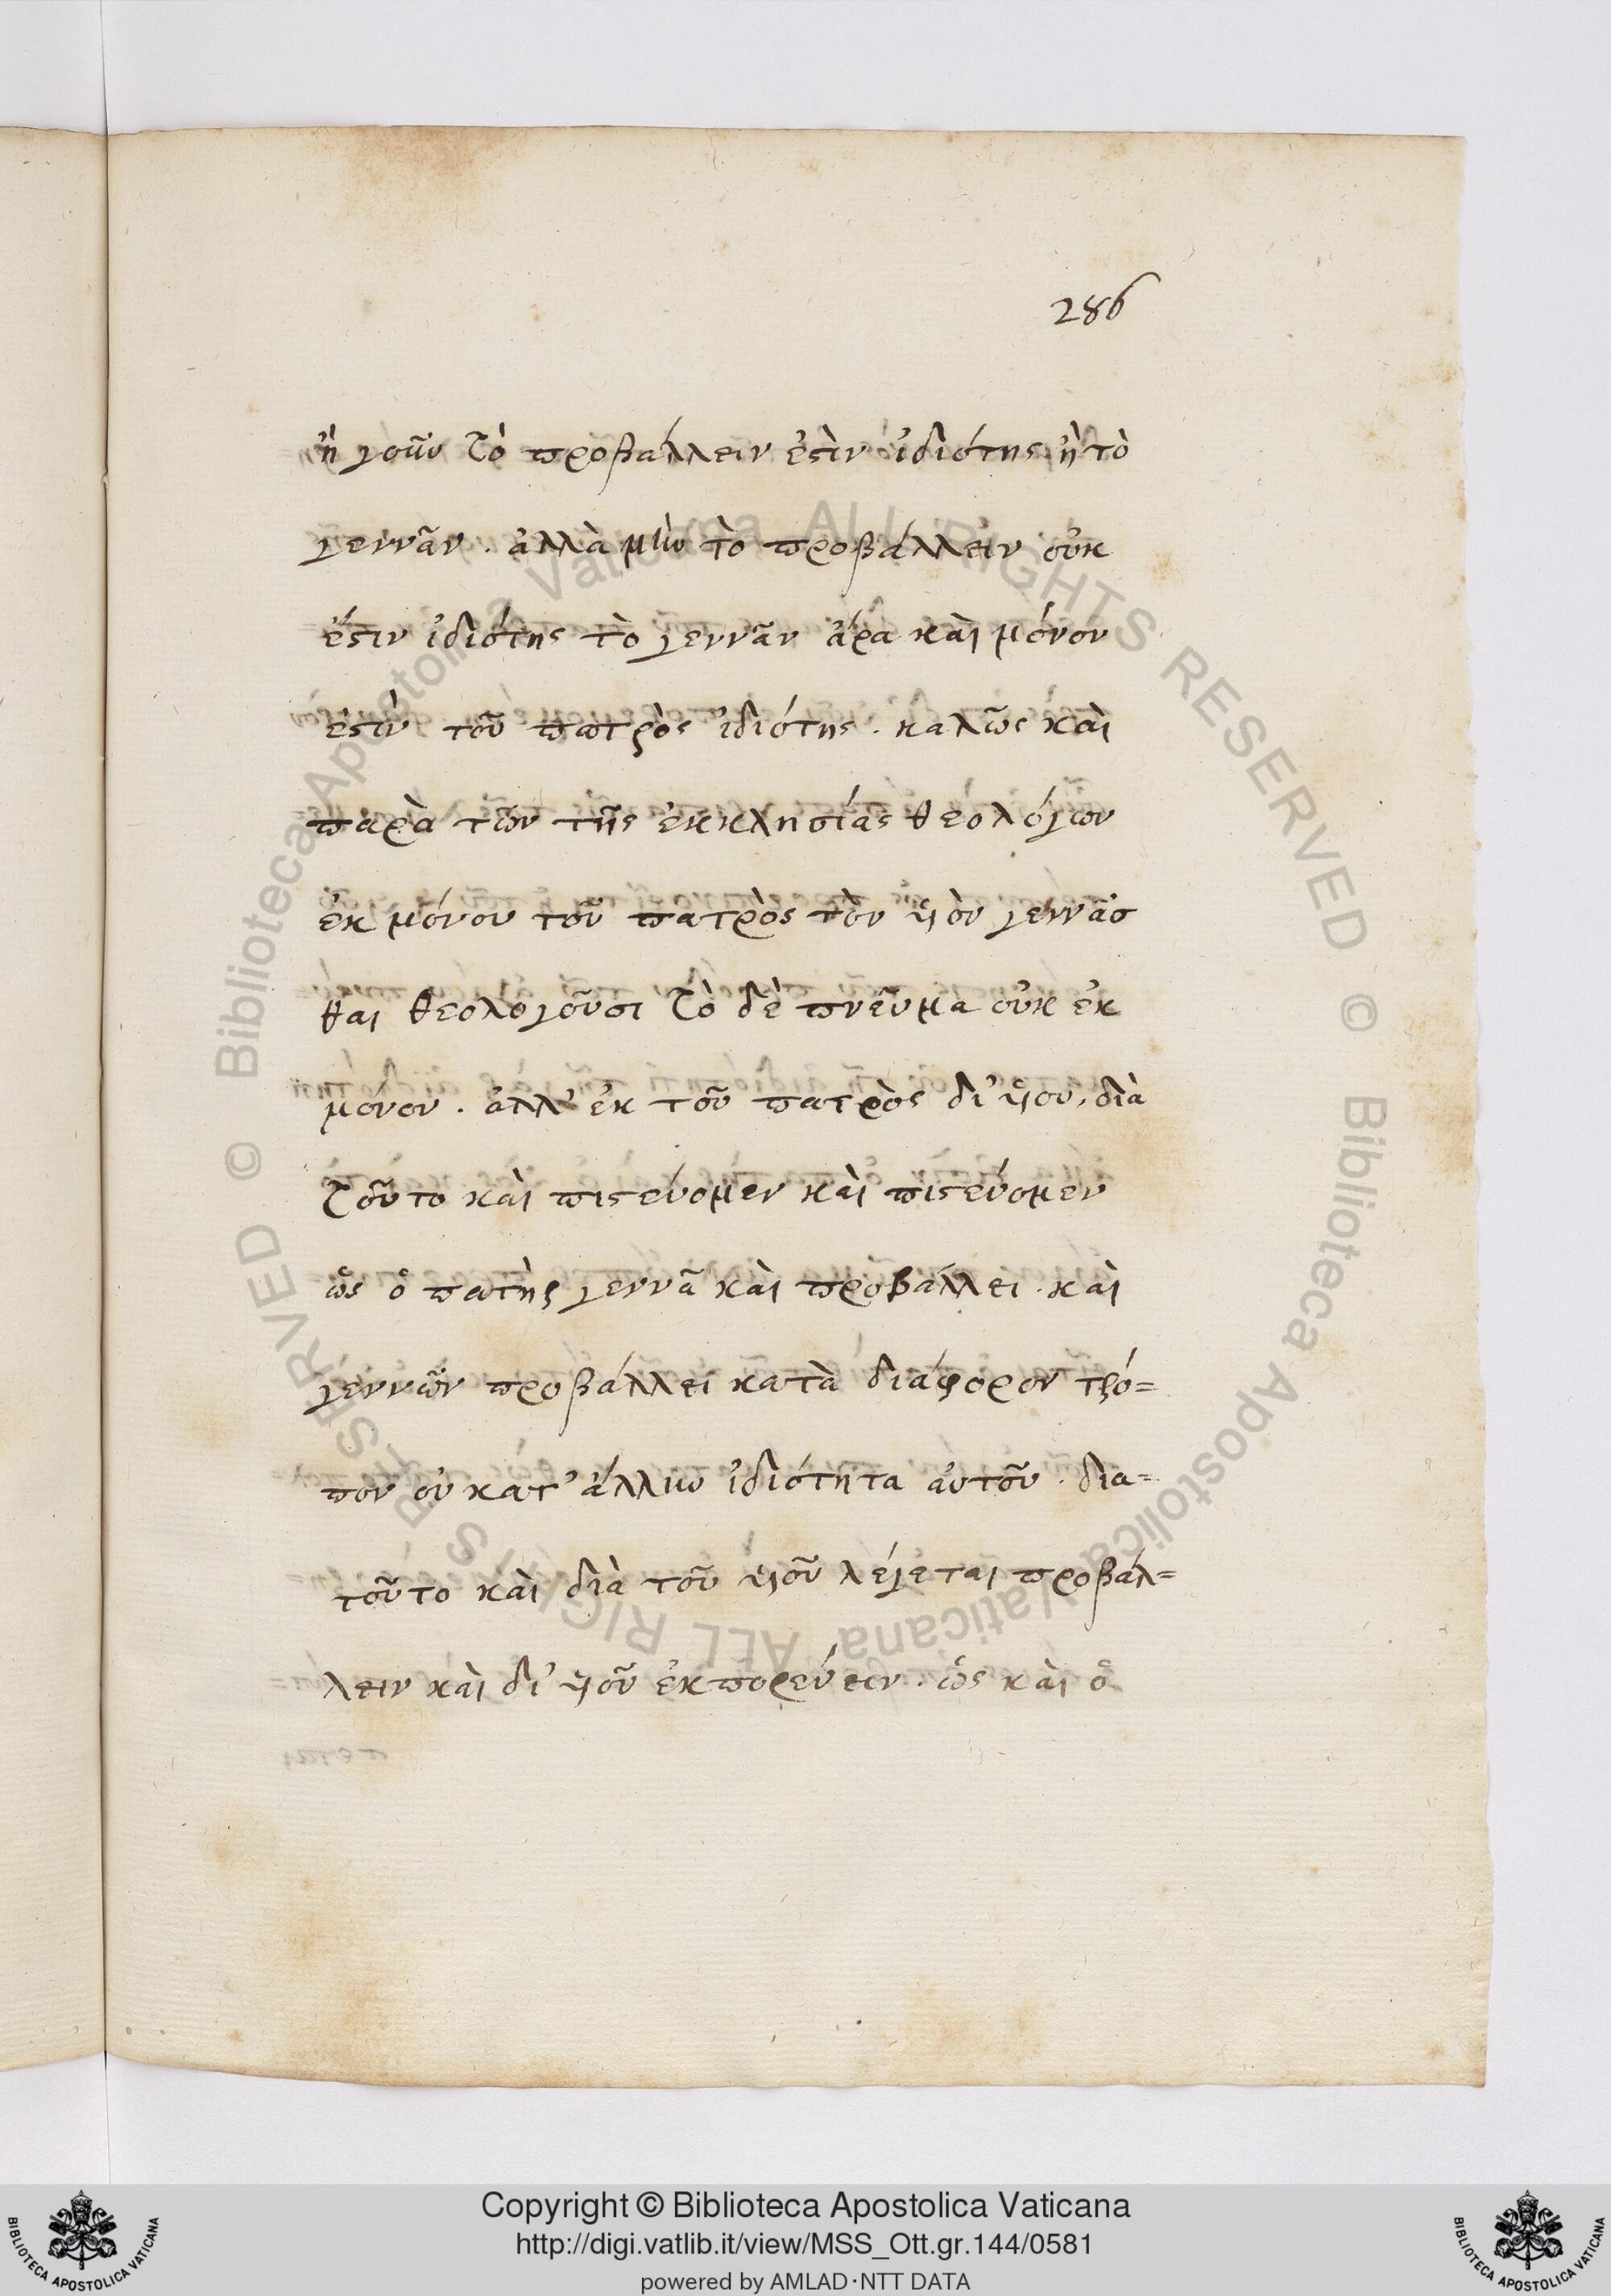 286
ἢ γοῦν τὸ προβάλλειν ἐστὶν ἰδιότης ἢ τὸ
γεννᾶν. ἀλλὰ μὴν τὸ προβάλλειν οὐκ
ἔστιν ἰδιότης τὸ γεννᾶν ἄρα καὶ μόνον
ἐστὶ τοῦ πατρὸς ἰδιότης. καλῶς καὶ
παρὰ τῶν τῆς ἐκκλησίας θεολόγων
ἐκ μόνου τοῦ πατρὸς τὸν ὑϊὸν γεννᾶσ
θαι θεολογοῦσι τὸ δὲ πνεῦμα οὐκ ἐκ
μόνου. ἀλλ' ἐκ τοῦ πατρὸς δι' ὑϊοῦ, διὰ
τοῦτο καὶ πιστεύομεν καὶ πιστεύομεν
ὡς ὁ πατὴρ γεννᾶ καὶ προβάλλει. καὶ
γεννῶν προβάλλει κατὰ διάφορον τρό=
πον οὐ κατ' ἄλλην ἰδιότητα αὐτοῦ. δια=
τοῦτο καὶ διὰ τοῦ ὑϊοῦ λέγεται προβάλ=
λειν καὶ δι' ὑϊοῦ ἐκπορεύειν. ὡς καὶ ὁ
Copyright © Biblioteca Apostolica Vaticana
http://digi.vatlib.it/view/MSS_Ott.gr.144/0581
powered by AMLAD·NTT DATA
BIBLIOTECA APOSTOLICA VATICANA
BIBLIOTECA APOSTOLICA VATICANA
© Biblioteca Apostolica Vaticana ALL RIGHTS RESERVED
© Biblioteca Apostolica Vaticana ALL RIGHTS RESERVED